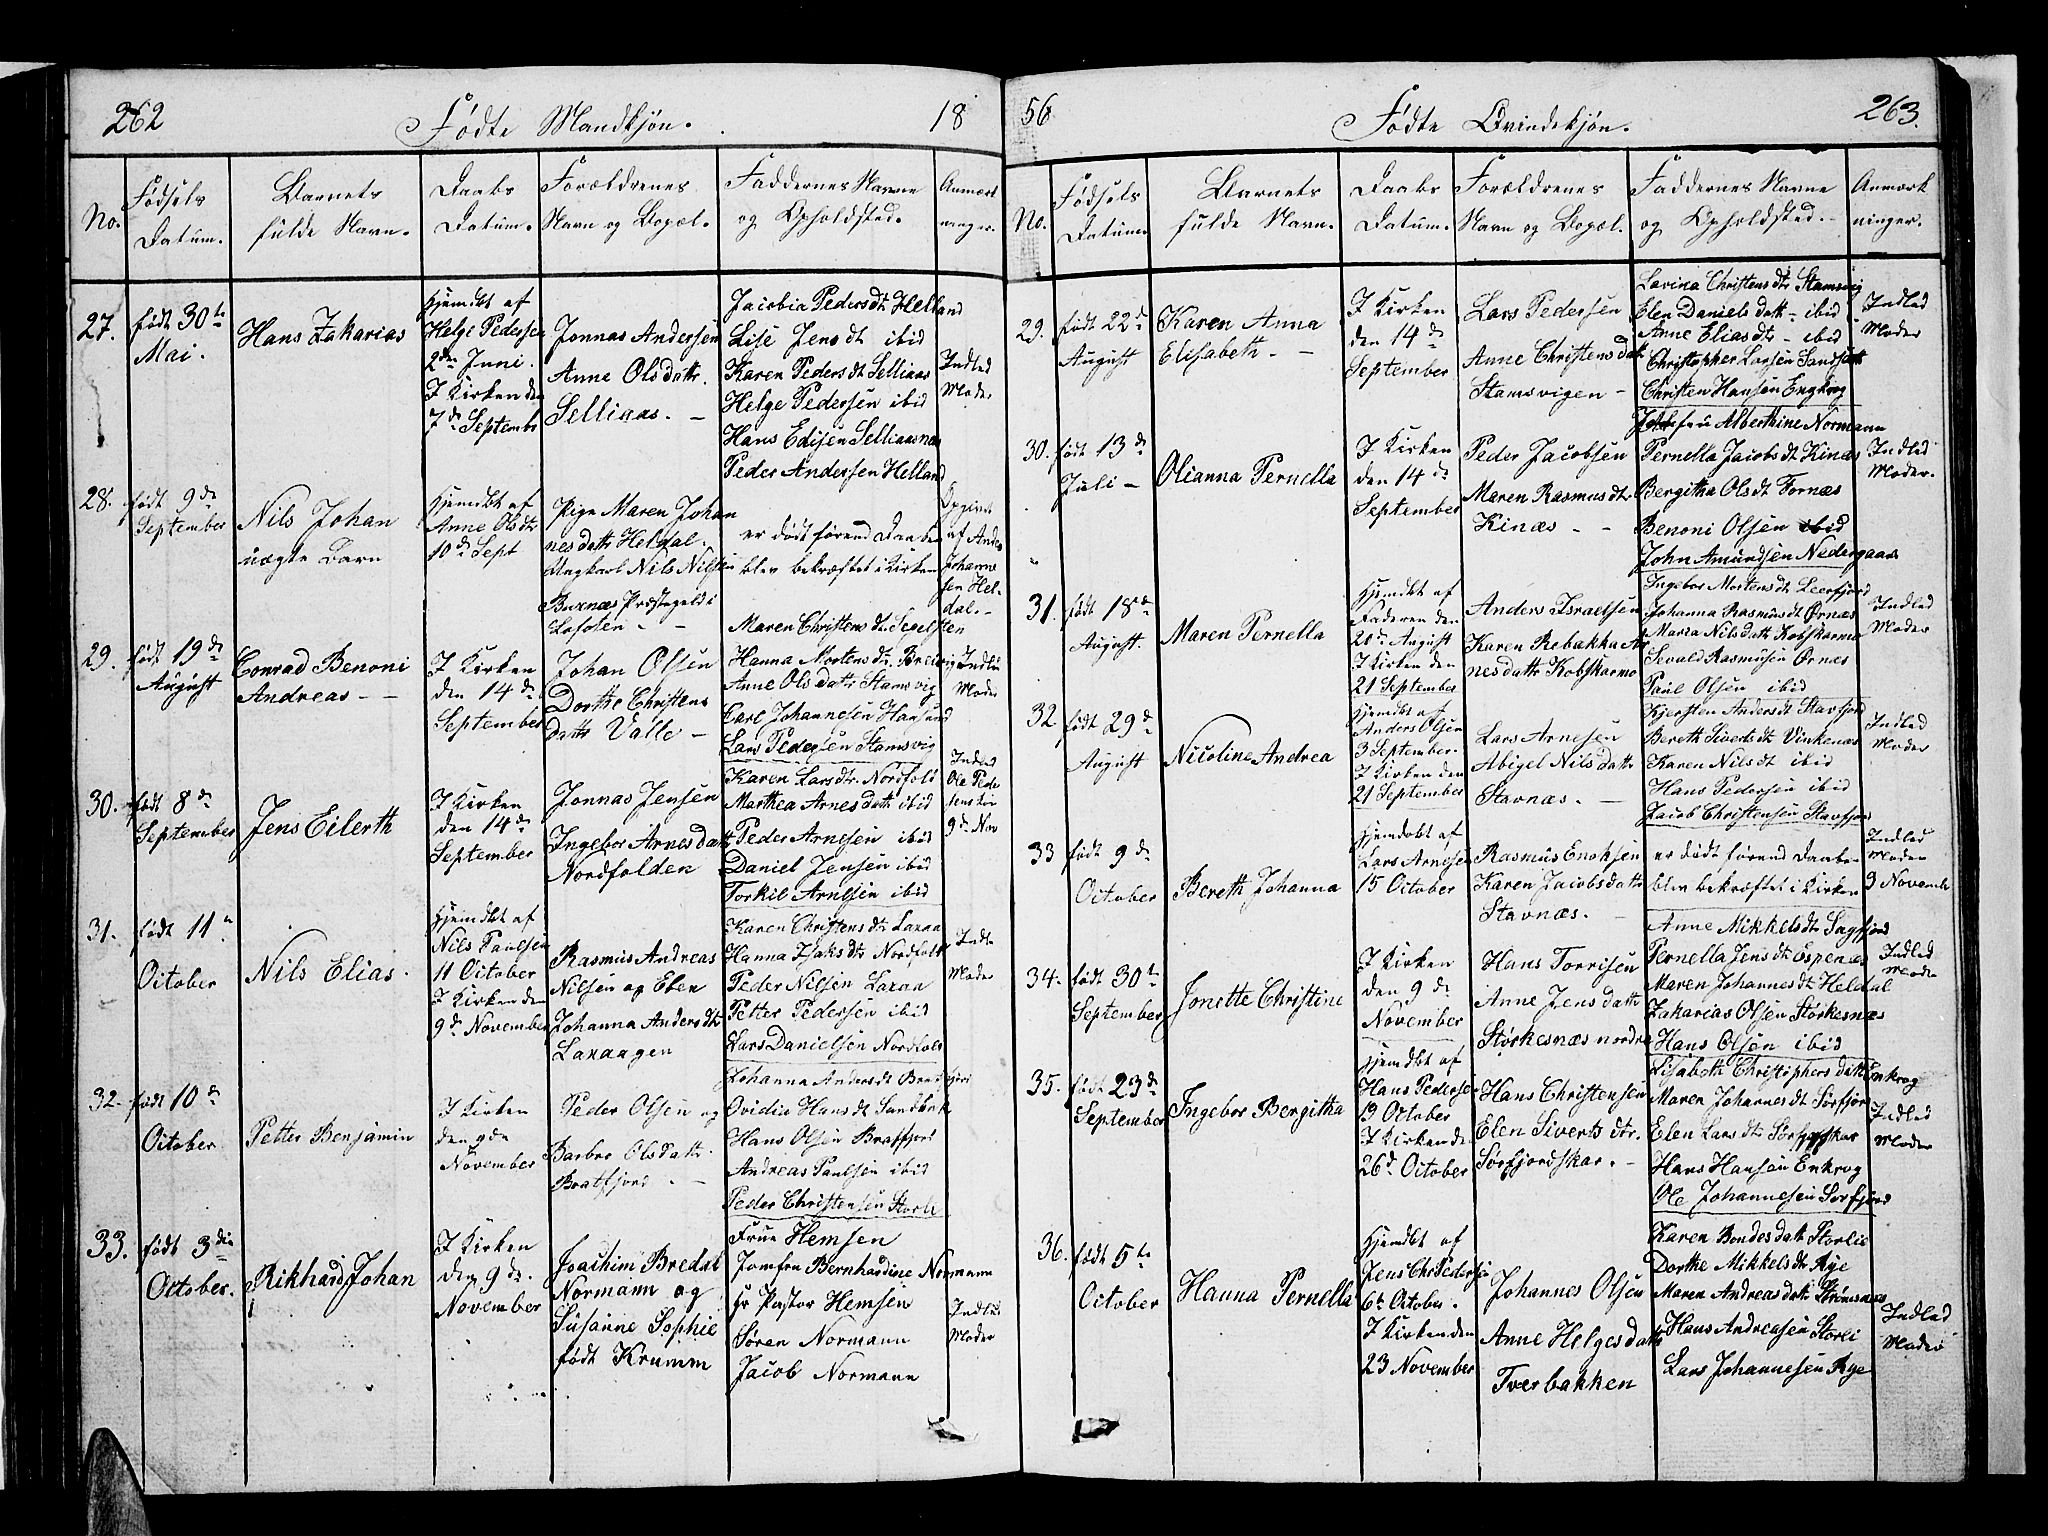 262
Fødte Mandkjøn.
18
No.
Fødsels
Datum.
Barnets
fulde Navn.
Daabs
Datum.
Forældrenes
Navn og Bopæl.
Faddernes Navne
og Opholdsted.
Anmærk
ninger.
27.
født 30te
Mai.
Hans Zakarias
Hjemdbt af
Helge Pedersen
2den Juni.
I Kirken den
7de Septembr
Jonnas Andersen
Anne Olsdattr.
Selliaas. –
Jacobia Pedersdt Helland
Lise Jensdt ibid
Karen Pedersdt Selliaas
Helge Pedersen ibid
Hans Edisen Selliaasnæs
Peder Andersen Helland
Indled
Moder
28.
født 9de
September
Nils Johan
uægte Barn
Hjemdbt af
Anne Olsdtr
10de Sept
Pige Maren Johan
nesdattr Heldal.
Ungkarl Nils Nilsen
Buxnæs Præstegeld i
Lofoten – –
er død førend Daaben
blev bekræftet i Kirken
Opgivet
af Anders
Johanne
sen Hel-
dal. –
29.
født 19de
August
Conrad Benoni
Andreas – –
I Kirken
den 14de
September
Johan Olsen
Dorthe Christens
dattr Valle –
Maren Christensdt. Segelsten
Hanna Mortensdtr. Breivig
Anne Olsdattr Stamsvig
Carl Johannesen Hansund
Lars Pedersen Stamsvig
Indled
Moder
30.
født 8de
September
Jens Eilerth
I Kirken
den 14de
September
Jonnas Jensen
Ingebor Arnesdatt
Nordfolden
Karen Larsdtr. Nordfold
Marthea Arnesdattr ibid
Peder Arnesen ibid
Daniel Jensen ibid
Torkil Arnesen ibid
Indled
Ole Pede
9de Nov
31.
født 11te
October
Nils Elias.
Hjemdbt af
Nils Paulsen
11 October
I Kirken den
9de November
Rasmus Andreas
Nilsen og Elen
Johanna Andersdtr
Laxaagen
Karen Christensdtr Laxaa
Hanna Isaksdtr Nordfold
Peder Nilsen Laxaa
Petter Pedersen ibid
Lars Danielsen Nordfold
Indl
Moder
32.
født 10de
October
Petter Benjamin
I Kirken
den 9de
November
Peder Olsen og
Barbro Olsdattr.
Bratfjord – –
Johanna Andersdt Bratfjord
Ovidia Hansdt Sandbak
Hans Olsen Bratfjord
Andreas Paulsen ibid
Peder Christensen Storli
33.
født 3die
October.
Rikhard Johan
I Kirken
den 9de.
November
Joachim Bredal
Normann og
Susanne Sophie
født Krumm
Frue Hemsen
Jomfru Bernhardine Normann
Hr Pastor Hemsen
Søren Normann
Jacob Normann
Indled
Moder
56
Fødte Qvindekjøn.
263.
No.
Fødsels
Datum.
Barnets
fulde Navn.
Daabs
Datum.
Forældrenes
Navn og Bopæl.
Faddernes Navne
og Opholdsted. –
Anmærk
ninger.
29.
født 22de
August
Karen Anna
Elisabeth. –
I Kirken
den 14de
September
Lars Pedersen
Anne Christensdatt
Stamsvigen –
Lovina Christensdtr Stamsvig
Elen Danielsdatt – ibid
Anne Eliasdt – ibid
Christopher Larsen Sandsætt
Christen Hansen Engkrog
Indled
Moder
30.
født 13de
Juli –
Olianna Pernella
I Kirken
den 14de
September
Peder Jacobsen
Maren Rasmusdtr
Kinæs – –
Jomfru Alberthine Normann
Pernella Jacobsdt Kinæs
Bergitha Olsdt Fornæs
Benoni Olsen ibid
John Amundsen Nedergaas
Indled
Moder.
31.
født 18de
August.
Maren Pernella
Hjemdbt af
Faderen den
20de August
I Kirken den
21 September
Anders Israelsen
Karen Rebakka Ar
nesdattr Kobskarmo
Ingebor Mortensdt Leerfjord
Johanna Rasmusdt Ørnæs
Maria Nilsdatt Kobskarmo
Sevald Rasmusen Ørnæs
Paul Olsen ibid
Indled
Moder
32
født 29de
August
Nicoline Andrea
Hjemdbt af
Anders Olsen
3 September.
I Kirken den
21 September
Lars Arnesen
Abigel Nilsdattr
Stavnæs. –
Kjersten Andersdt Stavfjord
Bereth Sivertsdtr Vinkenæs
Karen Nilsdt ibid
Hans Pedersen ibid
Jacob Christensen Stavfjord
Indled
Moder
33
født 9de
October
Bereth Johanna
Hjemdøbt af
Lars Arnesen
15 October
Rasmus Enoksen
Karen Jacobsdattr
Stavnæs. –
er død førend Daaben
blev bekræftet i Kirken
Indled
Moder
9 Novemb
34.
født 30te
September
Jonette Christine
I Kirken
den 9de
November
Hans Torrisen
Anne Jensdattr
Størkesnæs nordre
Anne Mikkelsdtr Sagfjord
Pernella Jensdt Espenæs
Maren Johannesdt Heldal
Zakarias Olsen Størkesnæs
Hans Olsen ibid
Indled
Moder
35.
født 23de
September
Ingebor Bergitha
Hjemdbt af
Hans Pederse
19 October
I Kirken de
26de October
Hans Christensen
Elen Sivertsdtr.
Sørfjordskar. –
Lisabeth Christophersdatt Enkrog
Maren Johannesdt Sørfjord
Elen Larsdtr Sørfjordskar
Hans Hansen Enkrog
Ole Johannesen Sørfjord
Indled
Moder
36.
født 5te
October
Hanna Pernella
Hjemdbt af
Jens Chr Pedersen
6te October.
I Kirken den
23 November
Johannes Olsen
Anne Helgesdattr
Tverbakken
Karen Bendesdatt Storlie
Dorthe Mikkelsdtr Rye
Maren Andreasdatt Strømsnæs
Hans Andreasen Storli
Lars Johannesen Rye
Indled
Moder